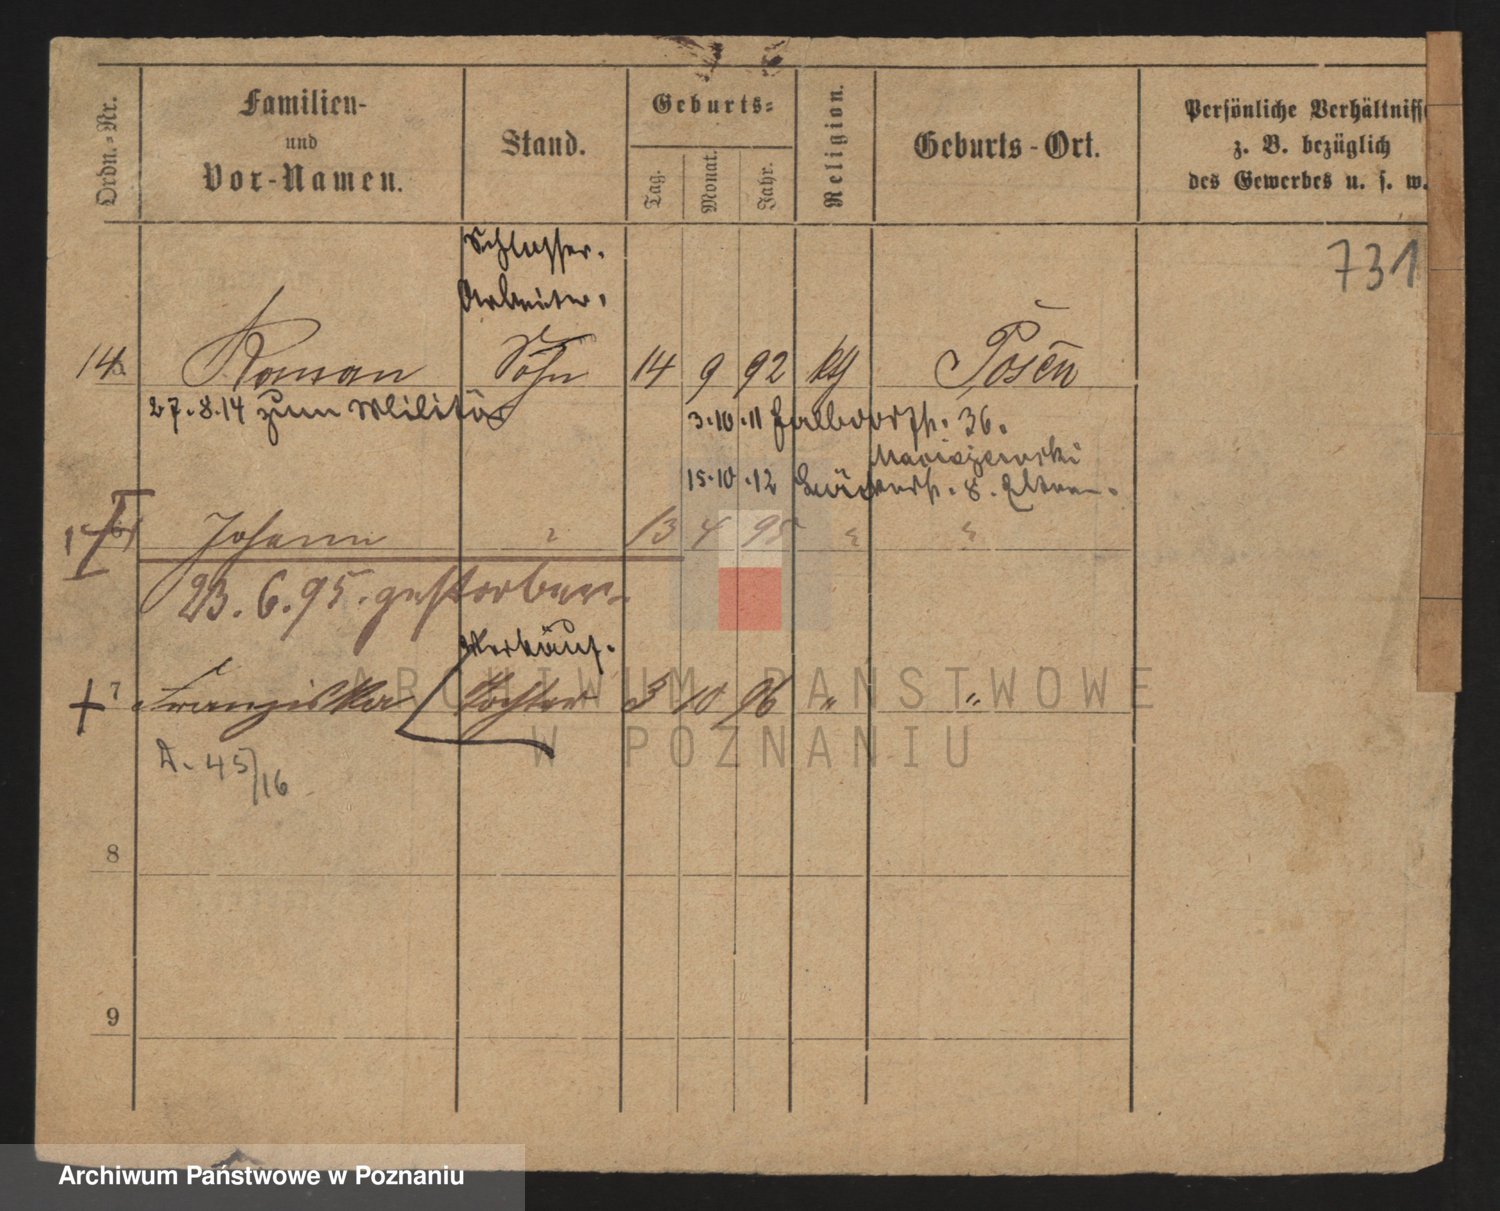 Ordn.-Nr.
Familien-
und
Vor-Namen.
Stand.
Geburts=
Tag.
Monat.
Jahr.
Religion.
Geburts-Ort.
Persönliche Verhältnisse
z. B. bezüglich
des Gewerbes u. s. w.
731
Schlosser.
Arbeiter.
14 Roman Sohn 14 9 92 kth Posen
27.8.14 zum Militär 3.10.11 Halbdorfstr. 36.
15.10.12 8. Eltern.
Johann " 13 4 95 " "
23.6.95. gestorben
Verkäuf.
7 Franziska Tochter 3 10 96 " "
A. 45/16
8
9
ARCHIWUM PAŃSTWOWE
W POZNANIU
Archiwum Państwowe w Poznaniu